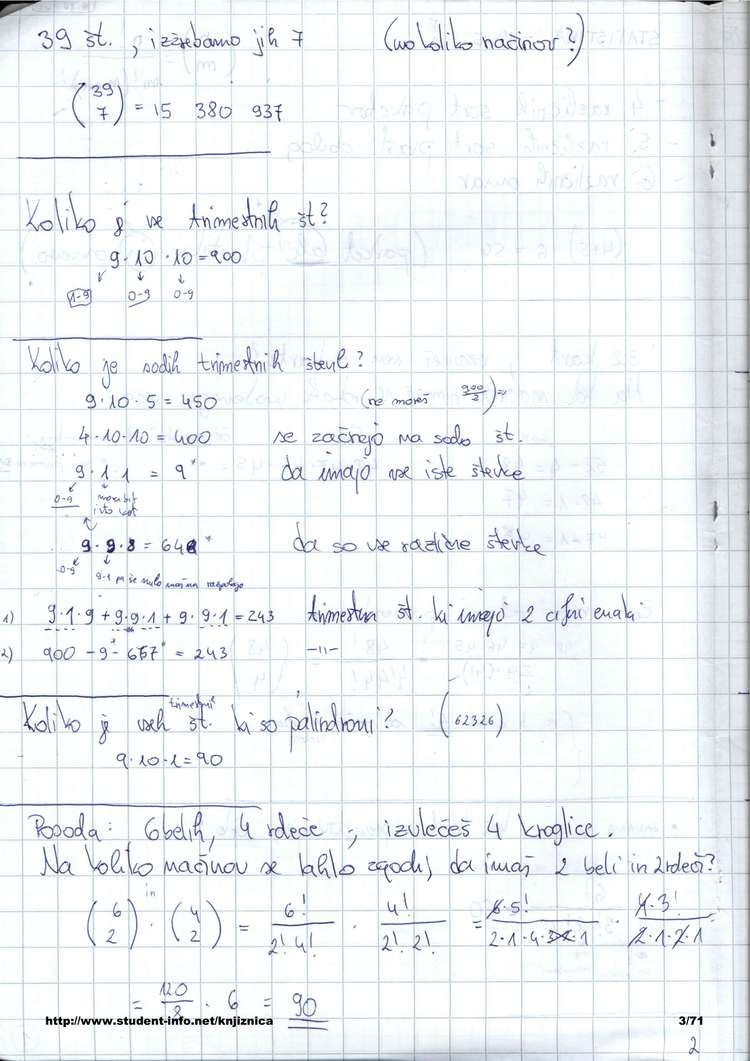 39 št. , izžrebamo jih 7 (na koliko načinov?)
(39 7) = 15 380 937
Koliko je vse trimestnih št?
9 · 10 · 10 = 900
1-9 0-9 0-9
Koliko je sodih trimestnih števil?
9 · 10 · 5 = 450 (ne moreš 900/2) =
4 · 10 · 10 = 400 se začnejo na sodo št.
9 · 1 · 1 = 9* da imajo vse iste števke
0-9 mora bit isto kot
9 · 9 · 8 = 648* da so vse različne števke
0-9 9-1 pa še nulo
1) 9·1·9 + 9·9·1 + 9·9·1 = 243 trimestna št. ki imajo 2 cifri enaki
2) 900 - 9* - 657* = 243 -11-
Koliko je vseh trimestnih št. ki so palindromi? (62326)
9 · 10 · 1 = 90
Posoda: 6 belih, 4 rdeče, izvlečeš 4 kroglice.
Na koliko načinov se lahko zgodi, da imaš 2 beli in 2 rdeči?
(6 2) in · (4 2) = 6!/2! 4! · 4!/2! 2! = 6·5!/2·1·4·3·2·1 · 4·3!/2·1·2·1
= 120/8 · 6 = 90
http://www.student-info.net/knjiznica 3/71
2